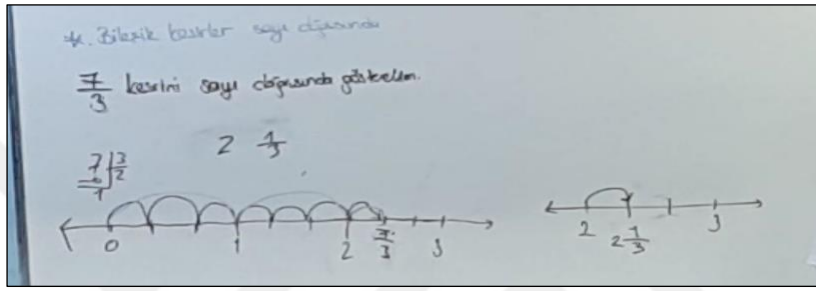 *. Bileşik kesirler sayı doğrusunda
7/3 kesrini sayı doğrusunda gösterelim.
2 1/3
7 3
6 2
1
0 1 2 7/3 3
2 2 1/3 3